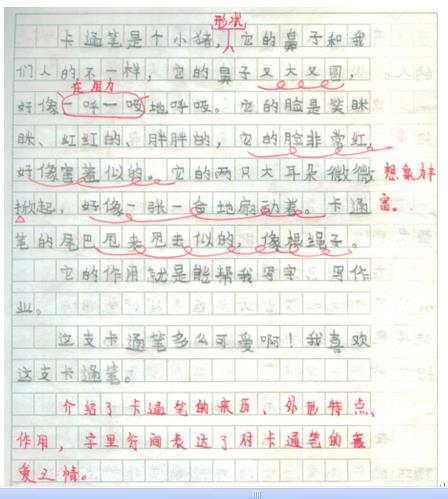 形状
卡通笔是个小猪，它的鼻子和我
们人的不一样，它的鼻子又大又圆，
在用力
好像一呼一吸地呼吸。它的脸是笑眯
眯、红红的、胖胖的，它的脸非常红，
好像害羞似的。它的两只大耳朵微微
想象力丰
掀起，好像一张一合地扇动着。卡通
富。
笔的尾巴甩来甩去似的，像根绳子。
它的作用就是能帮我写字、写作
业。
这支卡通笔多么可爱啊！我喜欢
这支卡通笔。
介绍了卡通笔的来历、外形特点、
作用，字里行间表达了对卡通笔的喜
爱之情。